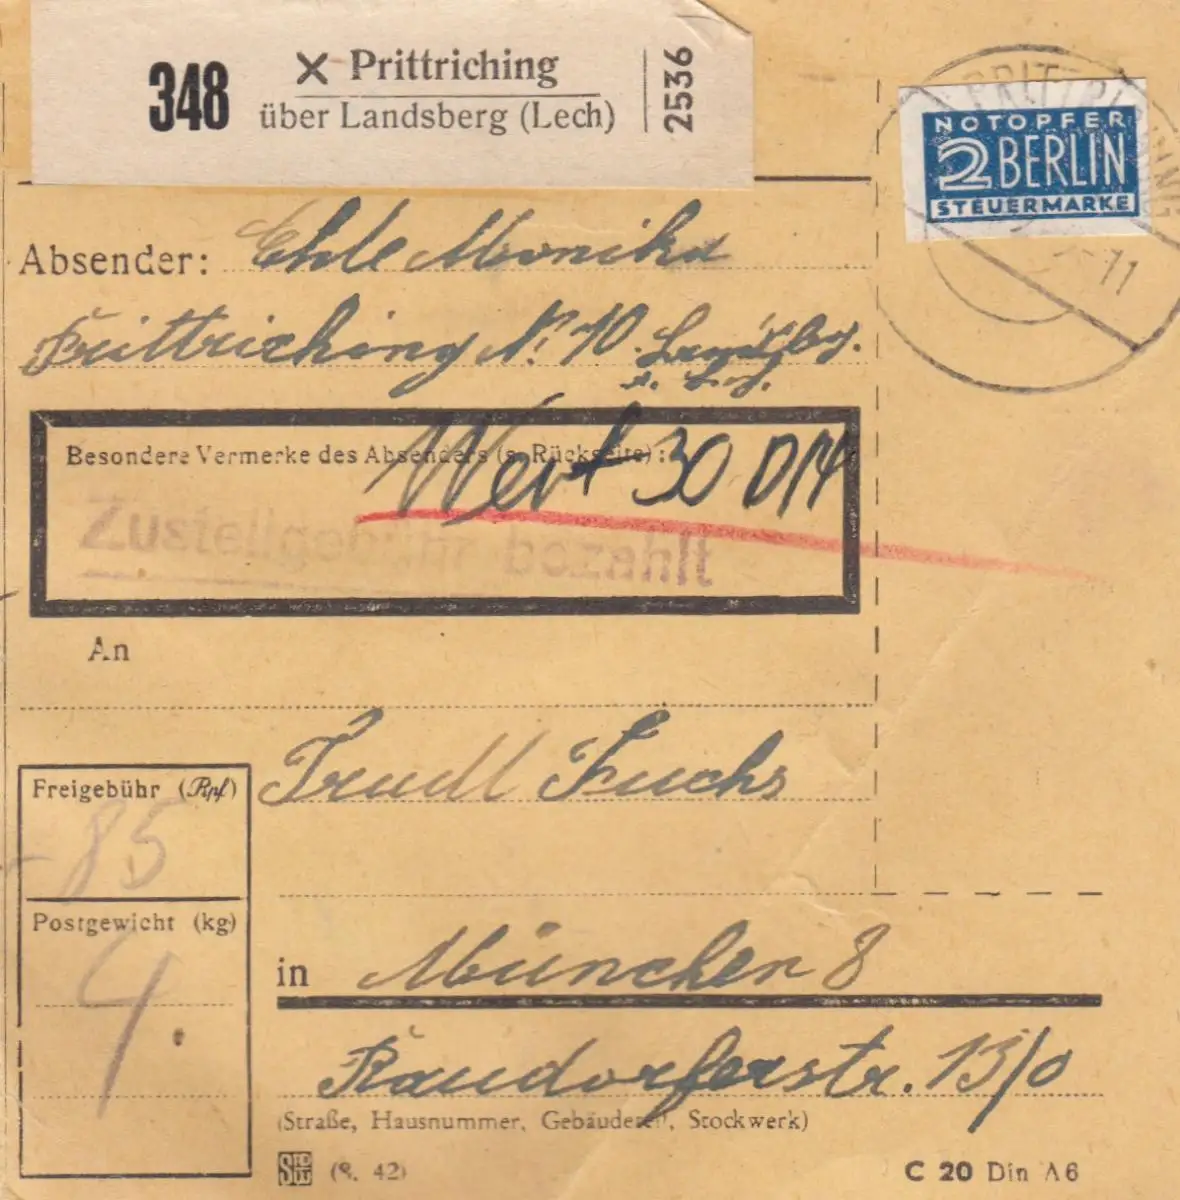 348
× Prittriching
über Landsberg (Lech)
2536
PRITTRICHING
11
NOTOPFER
2 BERLIN
STEUERMARKE
Absender: Ehle Monika
Prittriching Nr. 10
Besondere Vermerke des Absenders (s. Rückseite):
Wert 30 DM
Zustellgebühr bezahlt
An
Trudl Fuchs
Freigebühr (Rpf)
85
Postgewicht (kg)
4
in München 8
str. 13/0
(Straße, Hausnummer, Gebäudeteil, Stockwerk)
(8. 42)
C 20 Din A6